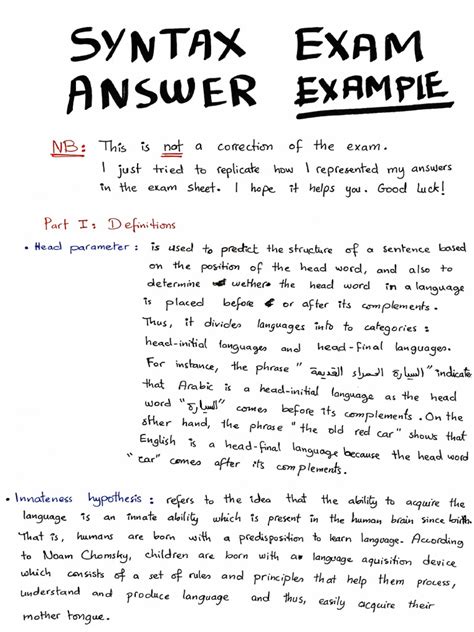 SYNTAX EXAM
ANSWER EXAMPLE
NB: This is not a correction of the exam.
I just tried to replicate how I represented my answers
in the exam sheet. I hope it helps you. Good luck!
Part I: Definitions
• Head parameter: is used to predict the structure of a sentence based
on the position of the head word, and also to
determine wethere the head word in a language
is placed before or after its complements.
Thus, it divides languages into to categories:
head-initial languages and head-final languages.
For instance, the phrase "السيارة الحمراء القديمة" indicate
that Arabic is a head-initial language as the head
word "السيارة" comes before its complements. On the
other hand, the phrase "the old red car" shows that
English is a head-final language because the head word
"car" comes after its complements.
• Innateness hypothesis: refers to the idea that the ability to acquire the
language is an innate ability which is present in the human brain since birth.
That is, humans are born with a predisposition to learn language. According
to Noam Chomsky, children are born with a language aquisition device
which consists of a set of rules and principles that help them process,
understand and produce language and thus, easily acquire their
mother tongue.